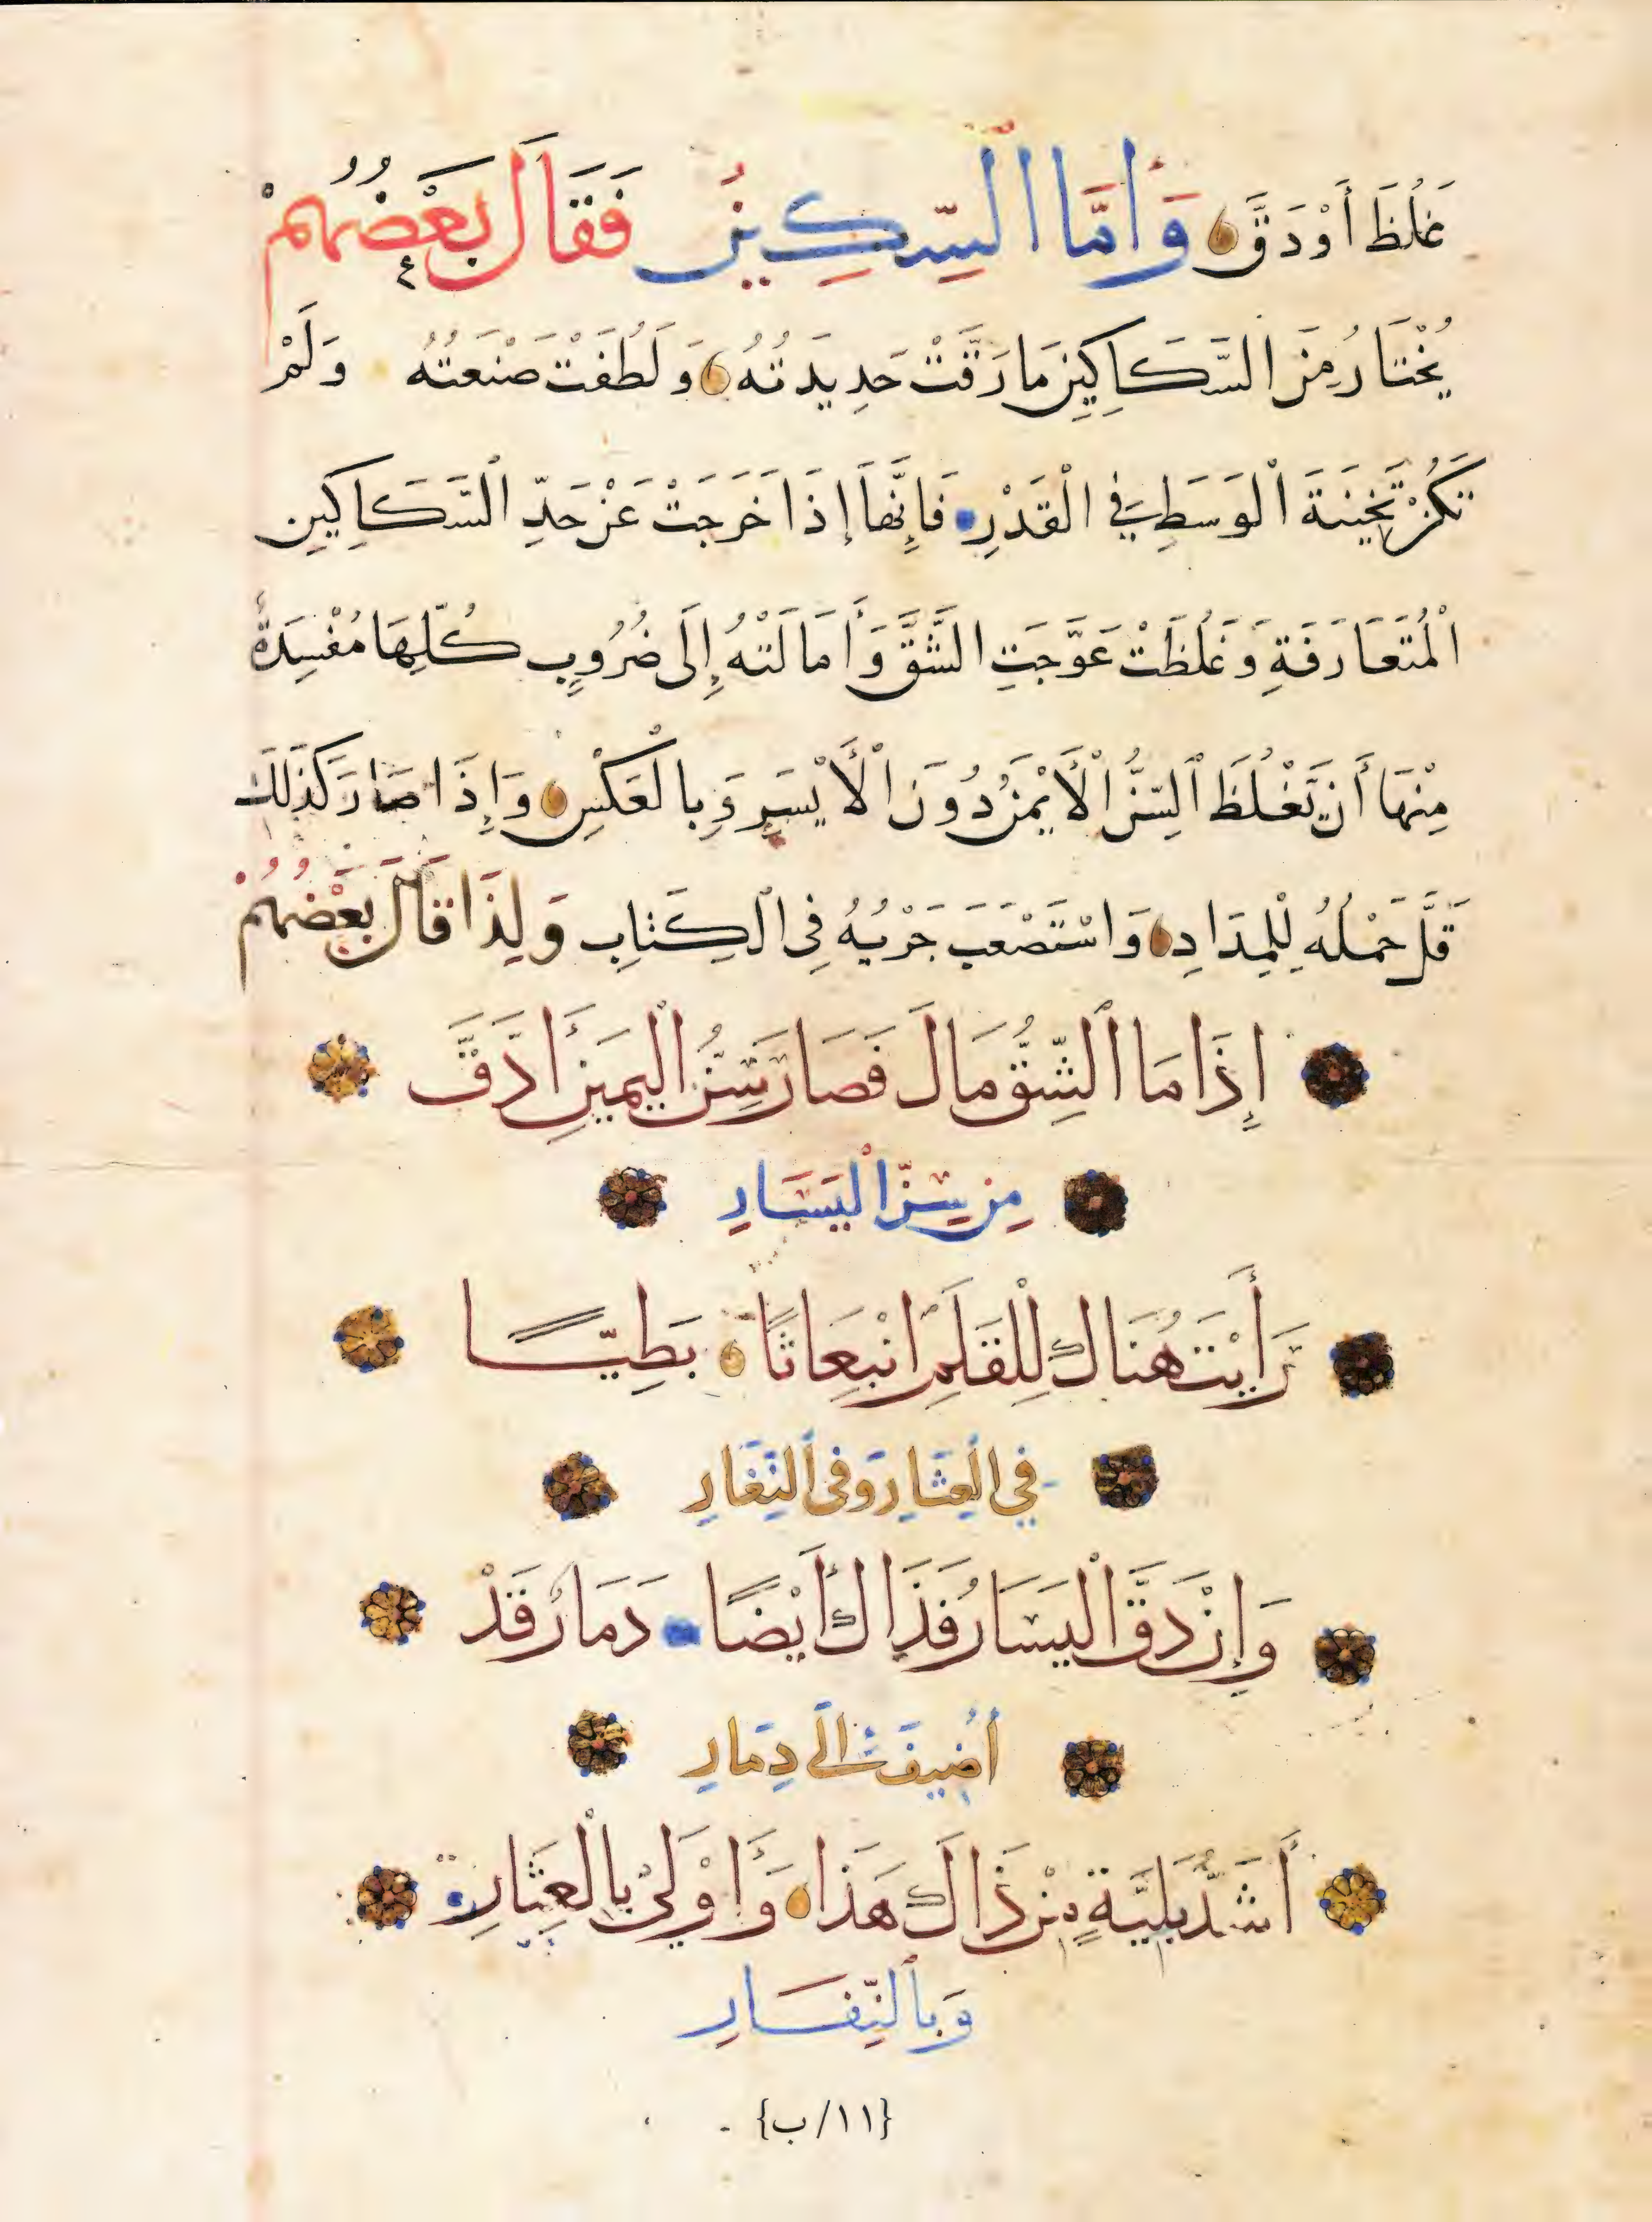 غَلُظَ أَوْ دَقَّ وَأَمَّا السِّكِّينُ فَقَالَ بَعْضُهُمْ
يُخْتَارُ مِنَ السَّكَاكِينِ مَا رَقَّتْ حَدِيدَتُهُ وَلَطُفَتْ صَنْعَتُهُ وَلَمْ
تَكُنْ ثَخِينَةَ الْوَسَطِ فِي الْقَدْرِ فَإِنَّهَا إِذَا خَرَجَتْ عَنْ حَدِّ السَّكَاكِينِ
الْمُتَعَارَفَةِ وَغَلُظَتْ عَوَّجَتِ الشَّقَّ وَأَمَالَتْهُ إِلَى ضُرُوبٍ كُلِّهَا مُفْسِدَةٌ
مِنْهَا أَن تَغْلُظَ السِّنُّ الْأَيْمَنُ دُونَ الْأَيْسَرِ وَبِالْعَكْسِ وَإِذَا صَارَ كَذَلِكَ
قَلَّ حَمْلُهُ لِلْمِدَادِ وَاسْتَصْعَبَ جَرْيُهُ فِي الْكِتَابِ وَلِذَا قَالَ بَعْضُهُمْ
إِذَا مَا الشِّقُّ مَالَ فَصَارَ سِنُّ الْيَمِينِ أَدَقَّ
مِن سِنِّ الْيَسَارِ
رَأَيْتَ هُنَاكَ لِلْقَلَمِ انْبِعَاثًا بَطِيًّا
فِي الْعِثَارِ وَفِي النِّغَارِ
وَإِنْ دَقَّ الْيَسَارُ فَذَاكَ أَيْضًا دَمَارٌ قَدْ
أُضِيفَ إِلَى دِمَارِ
أَشَدُّ بَلِيَّةٍ مِنْ ذَاكَ هَذَا وَأَوْلَى بِالْعِثَارِ
وَبِالنِّفَارِ
{١١/ب}